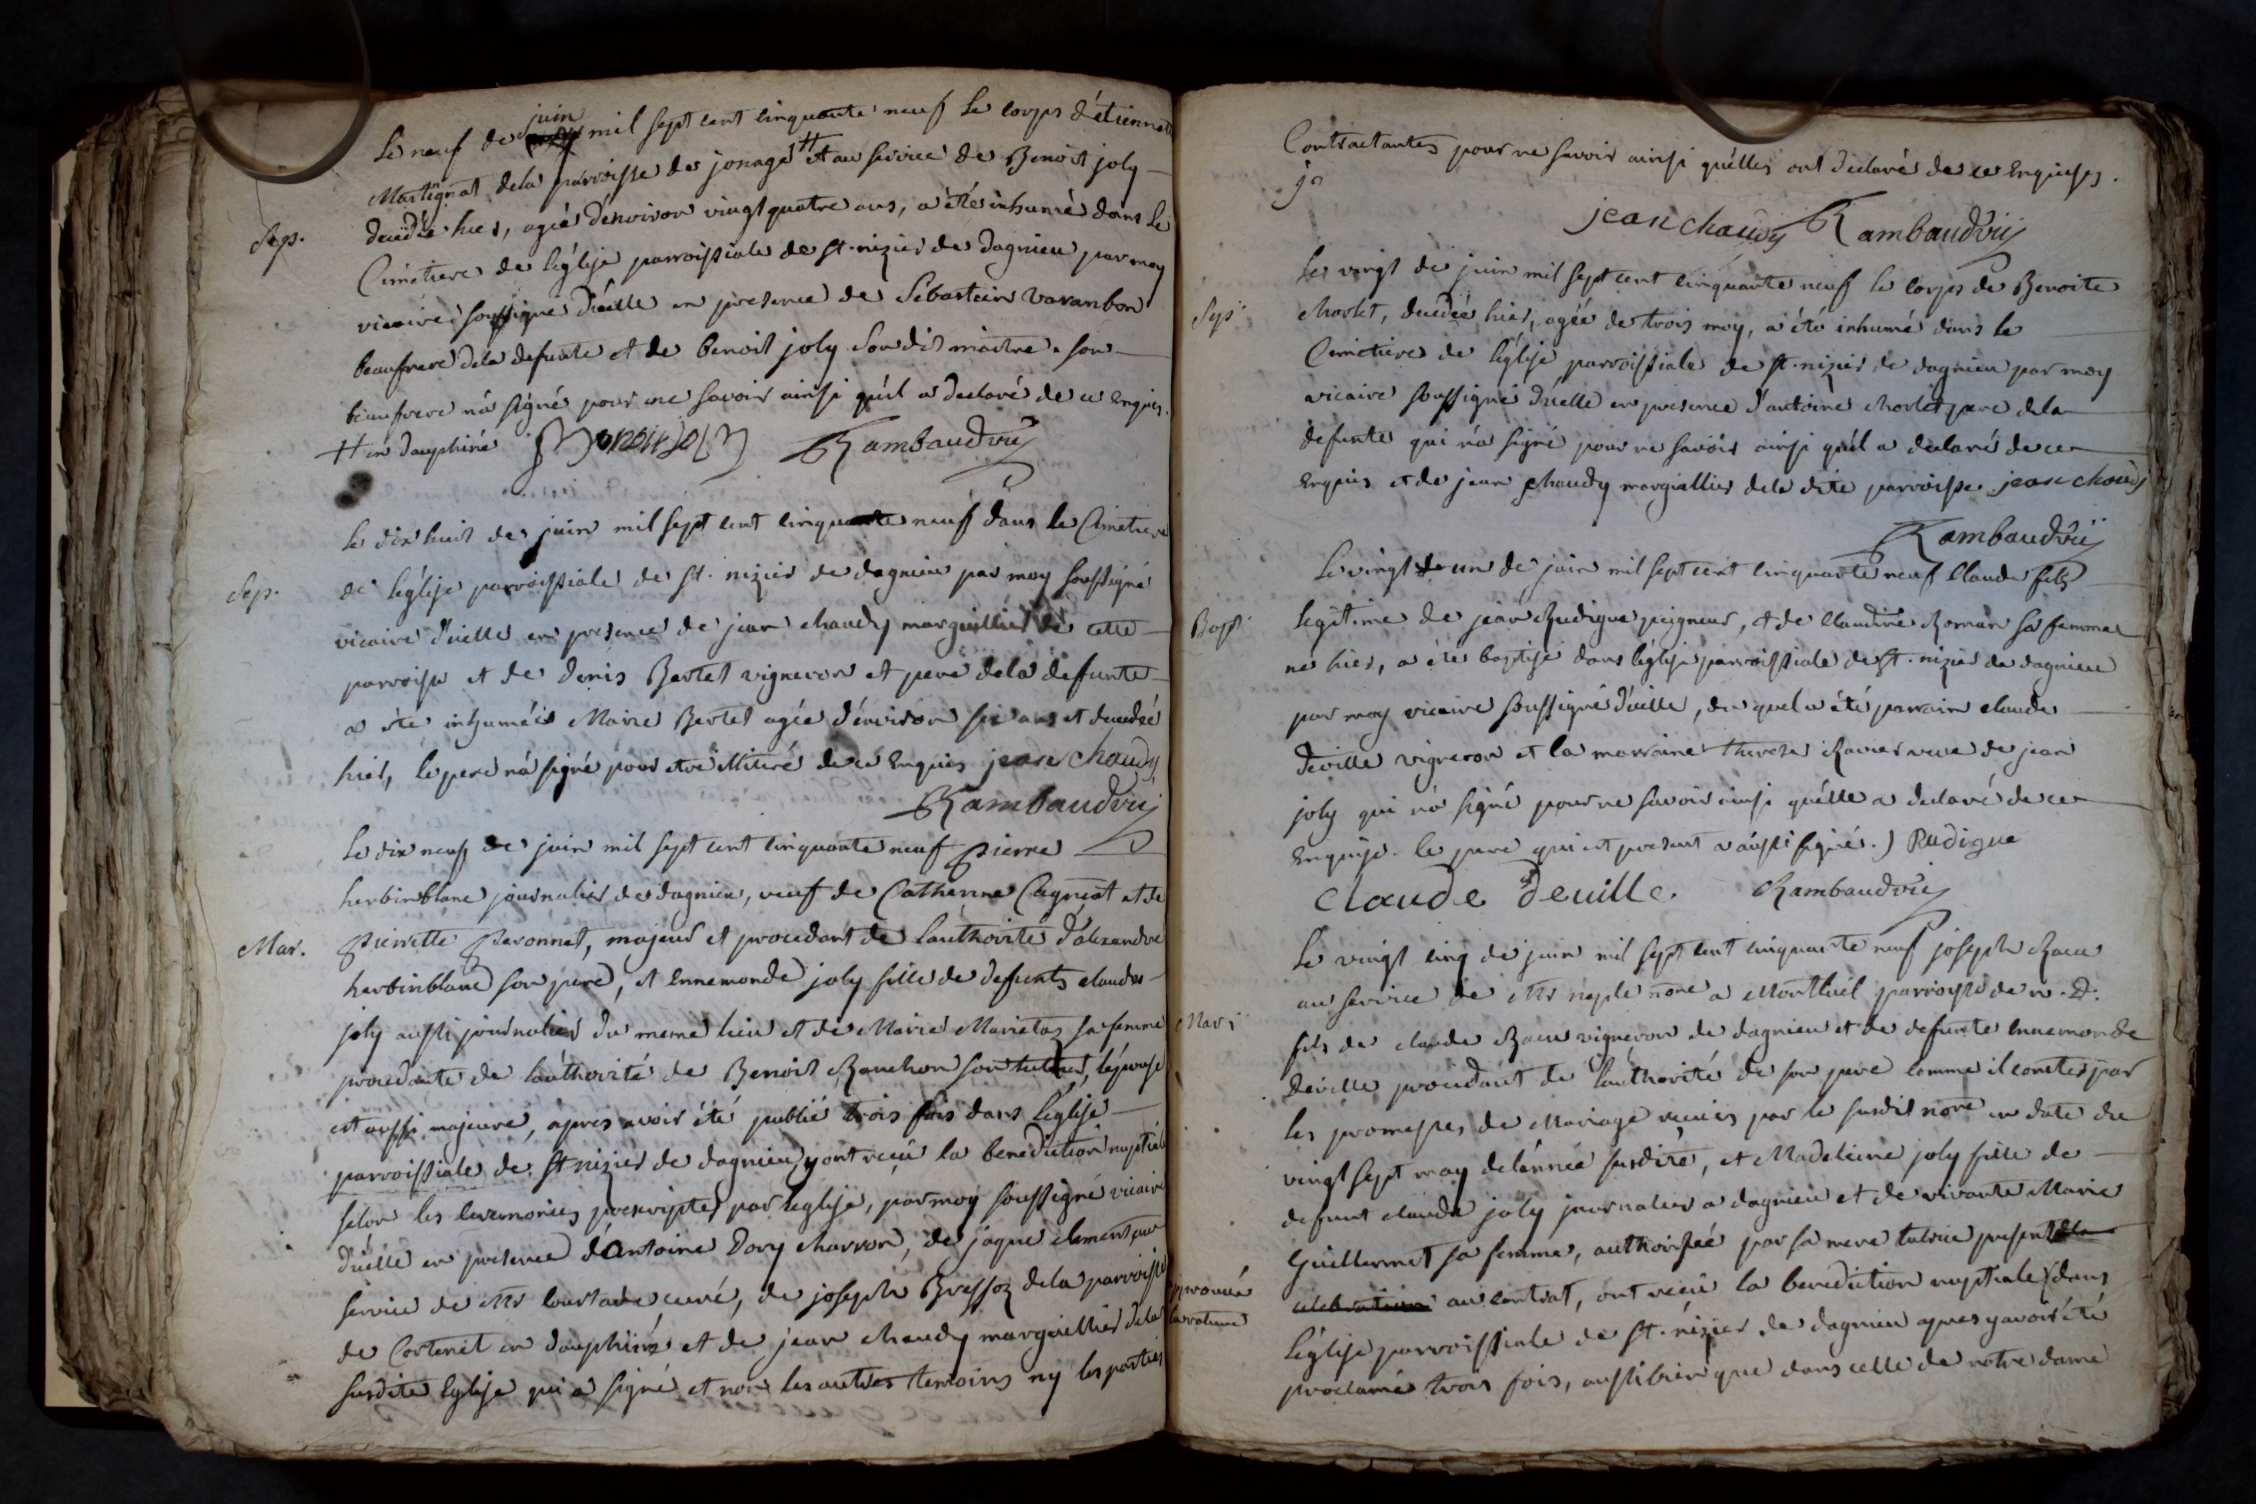 Le neuf de juin mil sept cent cinquante neuf le corps d'étiennette
Martignat dela parroisse de jonage # et au service de Benoit joly
Sep. decedée hier, agée d'environ vingt quatre ans, a été inhumé dans le
Cimetiere de l'église parroissiale de st. nizier de dagnieu par moy
vicaire soussigné d'icelle en presence de Sébastien Varanbon
beaufrere dela defunte et de benoit joly son dit maitre. son
beaufrere n'a signé pour ne savoir ainsi qu'il a declaré de ce enquis.
# en dauphiné Benoit joly Rambaud vic
Le dix huit de juin mil sept cent cinquante neuf dans le Cimetiere
Sep. de l'église parroissiale de st. nizier de dagnieu par moy soussigné
vicaire d'icelle en presence de jean chaudy marguillier de cette
parroisse et de denis Bertet vigneron et pere dela defunte
a été inhumée Marie Bertet agée d'environ six ans et decedée
hier, le pere n'a signé pour etre illitéré de ce enquis jean chaudy
Rambaud vic
Le dix neuf de juin mil sept cent cinquante neuf pierre
herbinblanc journalier de dagnieu, veuf de Catherine Cagniat et de
Mar. pierrette peronnet, majeur et procedant de l'authorité d'alexandre
herbinblanc son pere, et Ennemonde joly fille de defunts claude
joly aussi journalier du meme lieu et de Marie Marietas sa femme
procedante de l'authorité de Benoit Ranchon son tuteur, l'epouse
est aussi majeure, apres avoir été publié trois fois dans l'église
parroissiale de st nizier de dagnieu y ont reçu la benediction nuptiale
selon les ceremonies prescriptes par l'eglise, par moy soussigné vicaire
d'icelle en presence d'antoine Dory charron, de jaque clement au
service de Mr Courtade curé, de joseph Bressoz dela parroisse
de Corberet en dauphiné et de jean chaudy marguillier dela
susdite Eglise qui a signé et non les autres temoins ny les parties
Contractantes pour ne savoir ainsi quelles ont declaré de ce Enquises.
jean chaudy Rambaud vic
Le vingt de juin mil sept cent cinquante neuf le corps de Benoite
Sep. Morlet, decedée hier, agée de trois moy, a été inhumé dans le
Cimetiere de l'église parroissiale de st. nizier de dagnieu par moy
vicaire soussigné d'icelle en presence d'antoine Morlet pere dela
defunte qui n'a signé pour ne savoir ainsi qu'il a declaré de ce
enquis et de jean chaudy marguillier dela dite parroisse. jean chaudy
Rambaud vic
Le vingt un de juin mil sept cent cinquante neuf Claude fils
Bapt. legitime de jean Rudigue peigneur, et de Claudine Roman sa femme
né hier, a été baptisé dans l'église parroissiale de st. nizier de dagnieu
par moy vicaire soussigné d'icelle, du quel a été parrain claude
deville vigneron et la marraine therese Ravier veuve de jean
joly qui n'a signé pour ne savoir ainsi qu'elle a declaré de ce
enquise. le pere qui est present a aussi signé. J Rudigue
claude deuille. Rambaud vic
Le vingt cinq de juin mil sept cent cinquante neuf joseph Racu
au service de Mr neple nore a Montluel parroisse de n. D.
Mar. fils de claude Racu vigneron de dagnieu et de defunte Ennemonde
deville procedant de l'authorité de son pere comme il conste par
les promesses de Mariage recues par le susdit nore en date du
vingt sept may de l'année susdite, et Madeleine joly fille de
defunt claude joly journalier a dagnieu et de vivante Marie
Guillermet sa femme, authorisée par sa mere tutrice presente
approuvé la rature au contrat, ont reçu la benediction nuptiale dans
l'église parroissiale de st. nizier de dagnieu apres y avoir été
proclamé trois fois, aussi bien que dans celle de notre dame